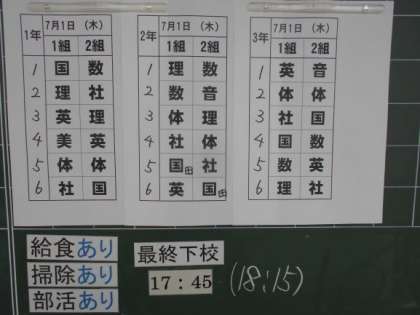 1年 7月1日 (木)
1組 2組
1 国 数
2 理 社
3 英 理
4 美 英
5 体 体
6 社 国
2年 7月1日 (木)
1組 2組
1 理 数
2 数 音
3 体 理
4 社 体
5 国 社
6 英 国
3年 7月1日 (木)
1組 2組
1 英 音
2 体 体
3 社 国
4 国 数
5 数 英
6 理 社
給食あり
掃除あり
部活あり
最終下校
17:45 (18:15)